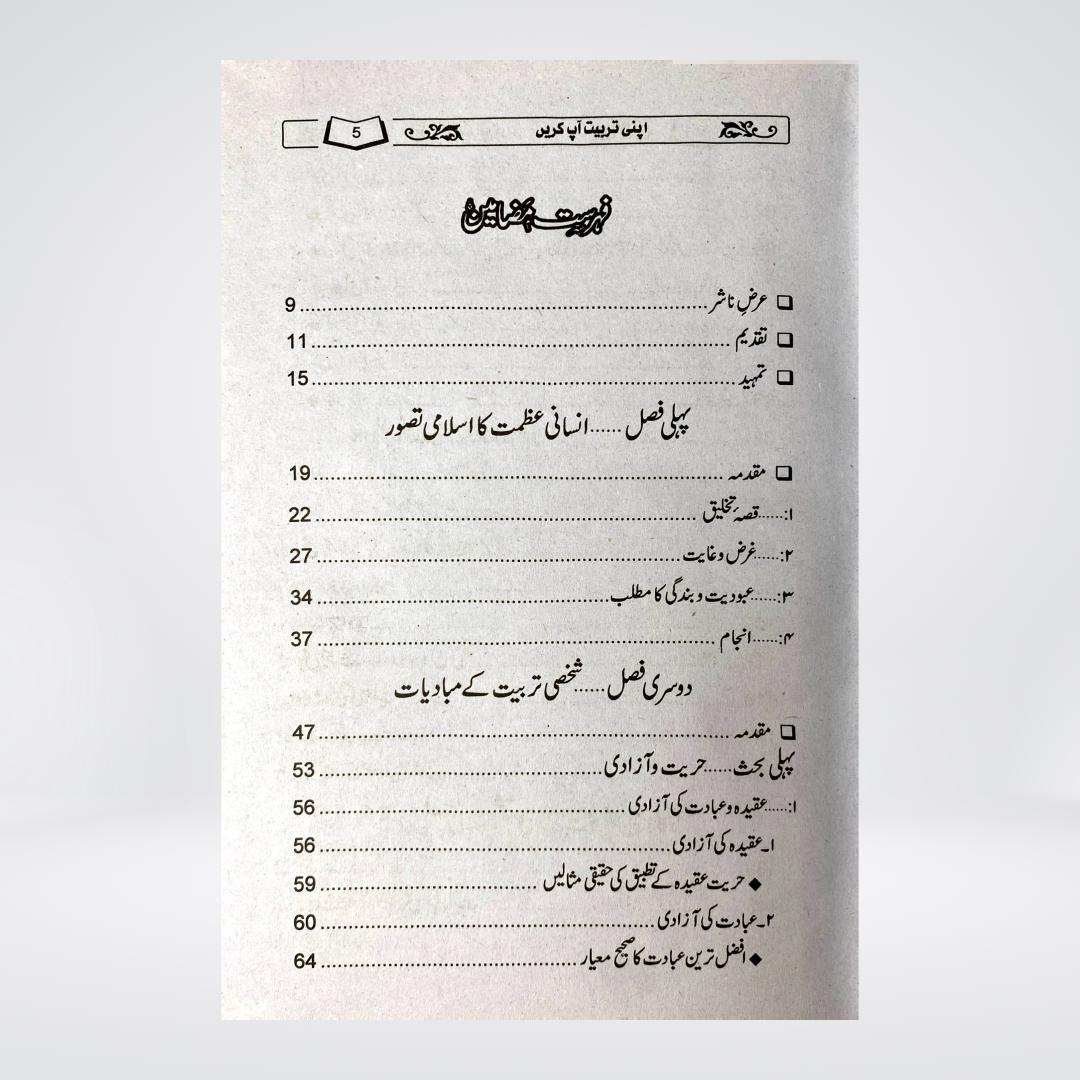 اپنی تربیت آپ کریں 5
فہرست مضامین
❑ عرضِ ناشر 9
❑ تقدیم 11
❑ تمہید 15
پہلی فصل ...... انسانی عظمت کا اسلامی تصور
❑ مقدمہ 19
۱:...... قصۂ تخلیق 22
۲:...... غرض و غایت 27
۳:...... عبودیت و بندگی کا مطلب 34
۴:...... انجام 37
دوسری فصل ...... شخصی تربیت کے مبادیات
❑ مقدمہ 47
پہلی بحث ...... حریت و آزادی 53
۱:...... عقیدہ و عبادت کی آزادی 56
۱۔ عقیدہ کی آزادی 56
◆ حریت عقیدہ کے تطبیق کی حقیقی مثالیں 59
۲۔ عبادت کی آزادی 60
◆ افضل ترین عبادت کا صحیح معیار 64